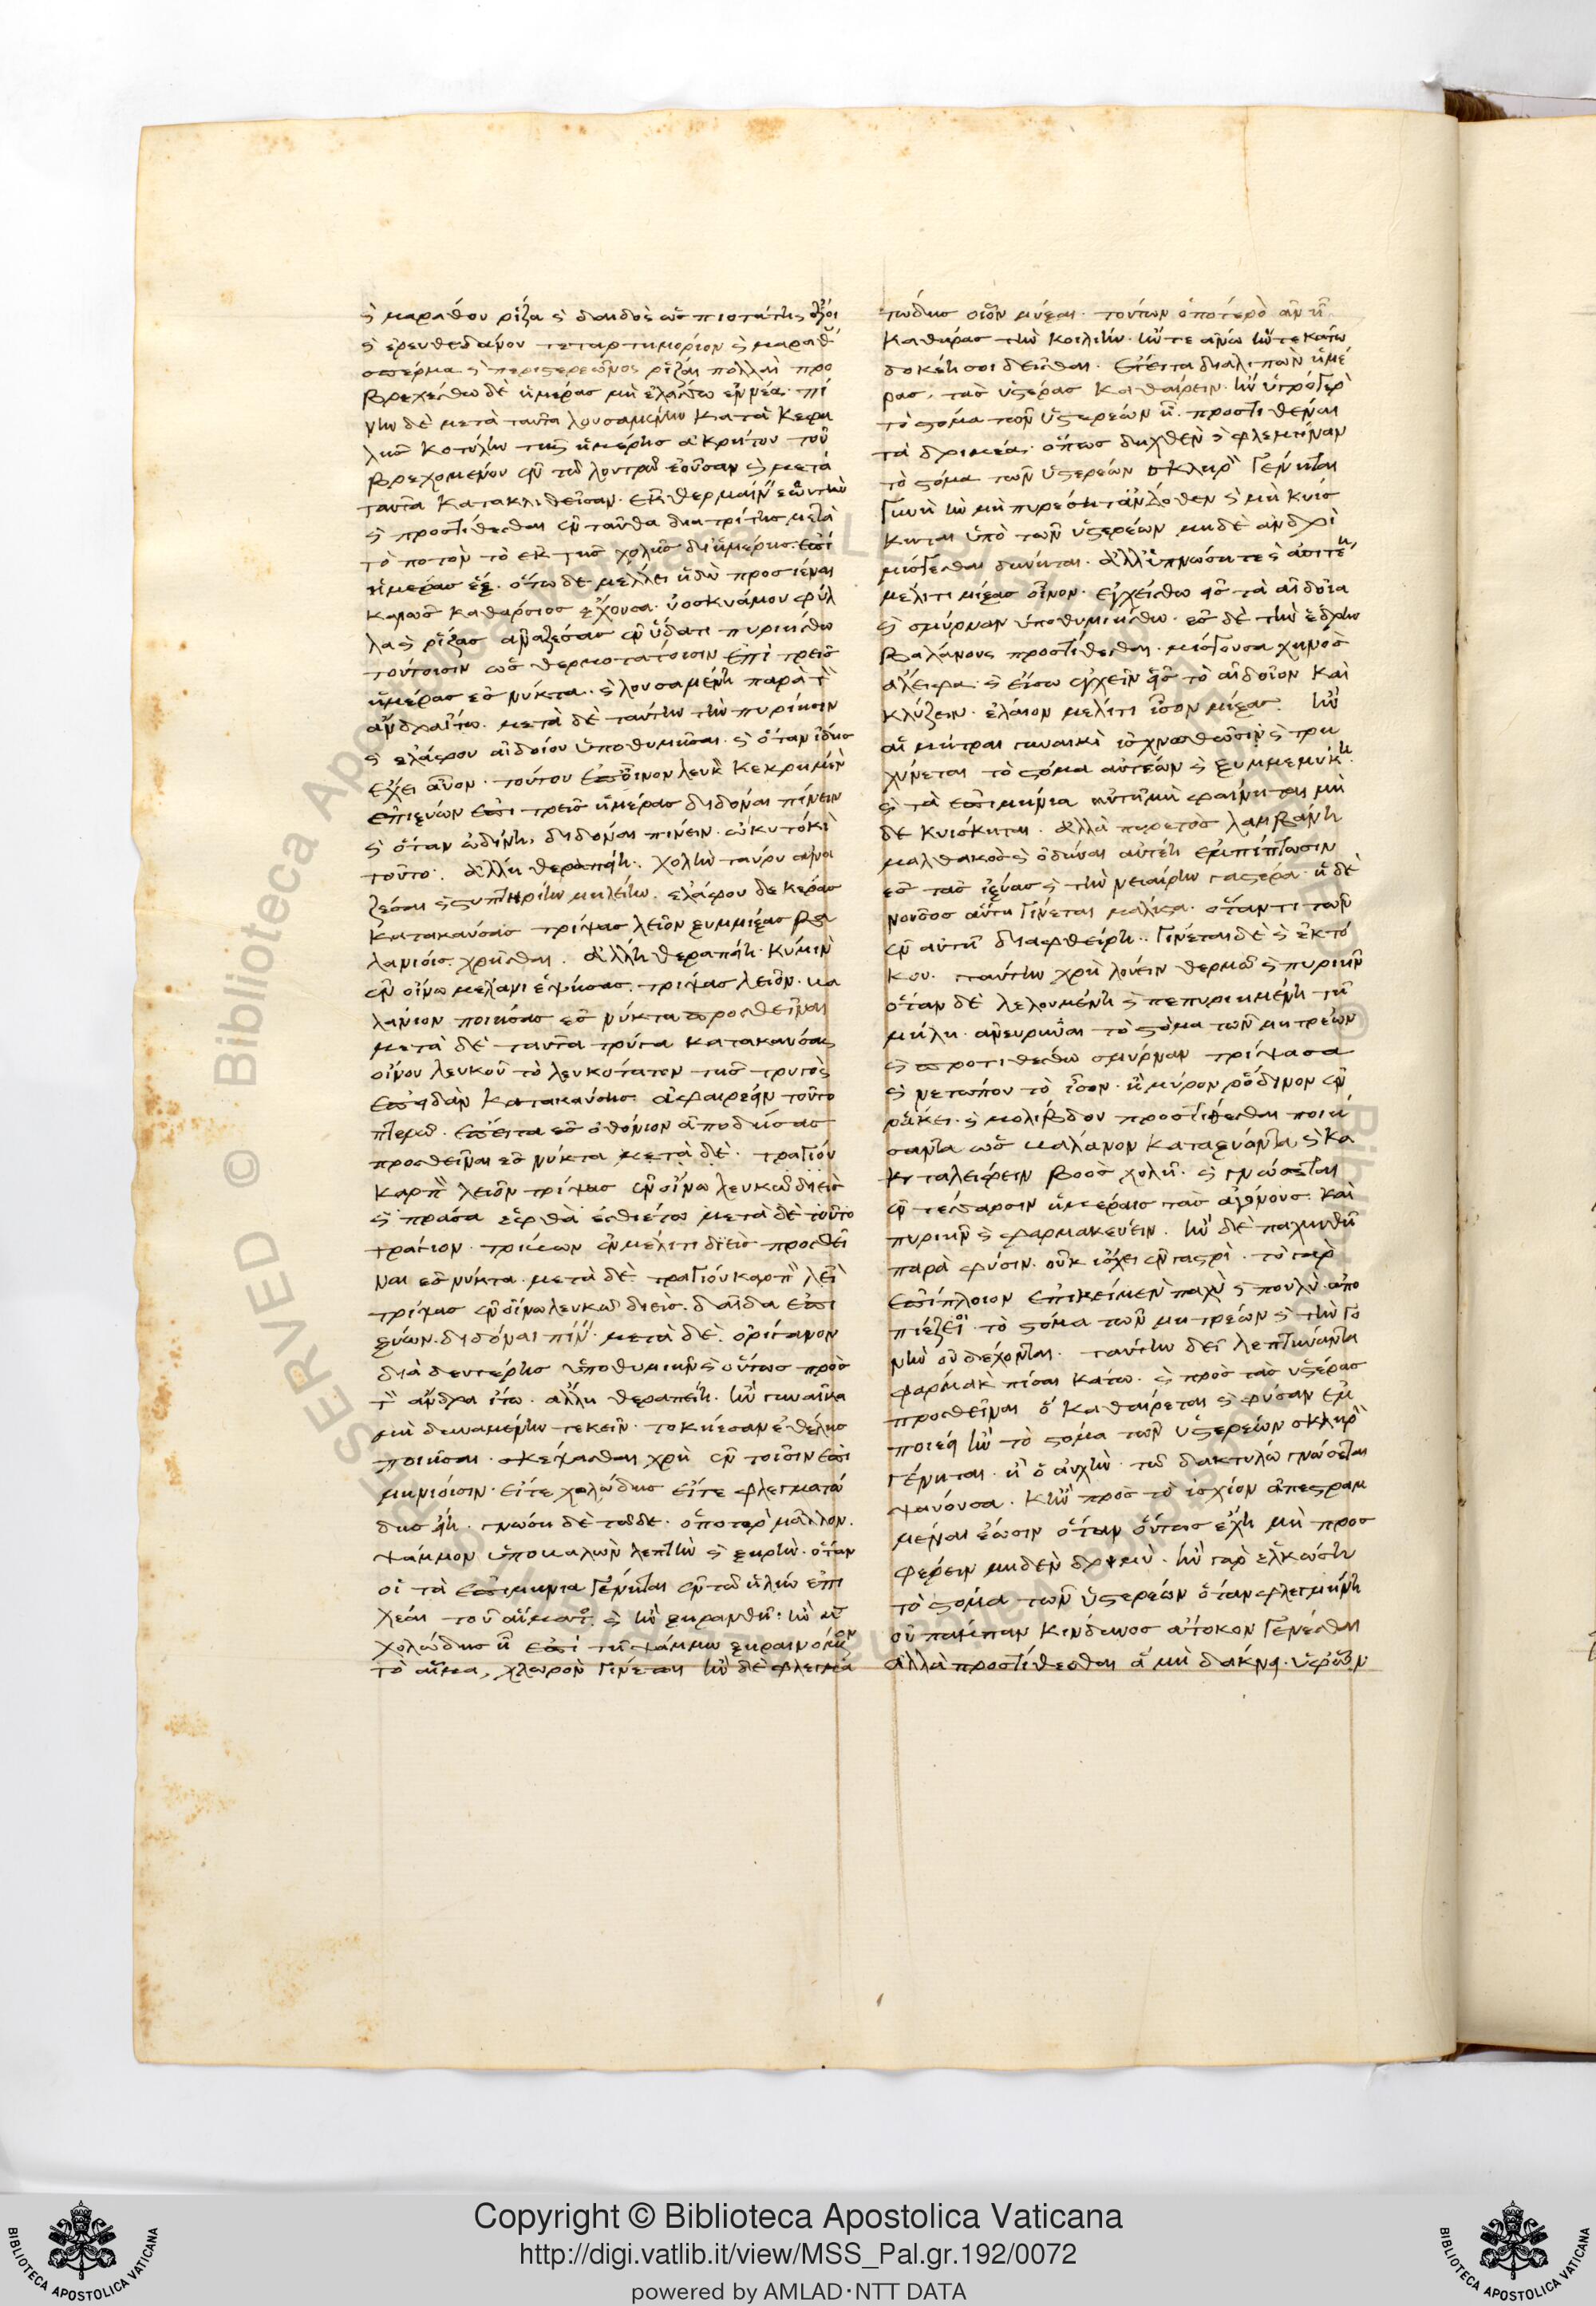 καὶ μαράθου ρίζα καὶ δαιδὸς ὡς πιοτάτης ὄζοι
καὶ ἐρευθεδάνου τεταρτημόριον καὶ μαράθου
σπέρμα καὶ περιστερεῶνος ρίζαι πολλαὶ προ
βρεχέσθω δὲ ἡμέρας μὴ ἐλάσσω ἐννέα. πί
νην δὲ μετὰ ταῦτα λουσαμένην κατὰ κεφα
λῆς κοτύλην τῆς ἡμέρης ἀκρήτου τοῦ
βρεχομένου ἐν τῶ λουτρῶ ἐοῦσαν καὶ μετὰ
ταῦτα κατακλιθεῖσαν. ἐκθερμαίνειν ἑωυτὴν
καὶ προστίθεσθαι ἐνταῦθα διὰ τρίτης μετὰ
τὸ ποτὸν τὸ ἐκ τῆς χολῆς δι' ἡμέρης. ἐπὶ
ἡμέρας ἕξ. ὅπως δὲ μέλλει ἤδη προσιέναι
καλῶς καθάρσιος ἔχουσα. ὑοσκυάμου φύλ
λα καὶ ρίζας ἀναζέσας ἐν ὕδατι πυριήσθω
τούτοισιν ὡς θερμοτάτοισιν ἐπὶ τρεῖς
ἡμέρας ἐς νύκτα. καὶ λουσαμένη παρὰ τὸν
ἄνδρα ἴτω. μετὰ δὲ ταύτην τὴν πυρίησιν
καὶ ἐλάφου αἰδοίου ὑποθυμιῆσαι. καὶ ὅταν ἴδης
ἔχει αὖον. τούτου ἐς οἶνον λευκὸν κεκρημένον
ἐπιξύων ἐπὶ τρεῖς ἡμέρας διδόναι πίνειν
καὶ ὅταν ὠδίνη, διδόναι πίνειν. ὠκυτόκιον
τοῦτο. ἄλλη θεραπηίη. χολὴν ταύρου
ζέσαι καὶ στυπτηρίην μηλείην. ἐλάφου δὲ κέρας
κατακαύσας τρίψας λεῖον ξυμμίξας βα
λανίοις χρῆσθαι. ἄλλη θεραπηίη. κύμινον
ἐν οἴνω μέλανι ἑψήσας. τρίψας λεῖον. βα
λάνιον ποιήσας ἐς νύκτα προσθεῖναι
μετὰ δὲ ταῦτα τρύγα κατακαύσας
οἴνου λευκοῦ τὸ λευκότατον τῆς τρυγὸς
ἐπειδὰν κατακαύσης ἀφαιρέειν τοῦτο
πτερῶ. ἔπειτα ἐς ὀθόνιον ἀποδήσας
προσθεῖναι ἐς νύκτα μετὰ δὲ. τραγίου
καρπὸν λεῖον τρίψας ἐν οἴνω λευκῶ διεὶς
καὶ πράσα ἑφθὰ ἐσθιέτω μετὰ δὲ τοῦτο
τράγιον. τρίβων ἐν μέλιτι διεὶς προσθεῖ
ναι ἐς νύκτα. μετὰ δὲ. τραγίου καρπὸν λεῖον
τρίψας ἐν οἴνω λευκῶ διεὶς. δαῖδα ἐπι
ξύων. διδόναι πίνειν. μετὰ δὲ. ὀρίγανον
διὰ δευτέρης ὑποθυμιῆν καὶ οὕτως πρὸς
τὸν ἄνδρα ἴτω. ἄλλη θεραπείη. ἢν γυναῖκα
μὴ δυναμένην τεκεῖν. τοκήεσαν ἐθέλης
ποιῆσαι. σκέψασθαι χρὴ ἐν τοῖσιν ἐπι
μηνίοισιν. εἴτε χολώδης εἴτε φλεγματώ
δης εἴη. γνώση δὲ τῶδε. ὁπότερον μᾶλλον.
ψάμμον ὑποβαλὼν λεπτὴν καὶ ξηρὴν. ὅταν
οἱ τὰ ἐπιμήνια γένηται ἐν τῶ ἡλίω ἐπι
χέαι τοῦ αἵματος καὶ ἢν ξηρανθῆ. ἢν μὲν
χολώδης ἦ ἐπὶ τῆ ψάμμω ξηραινόμενον
τὸ αἷμα, χλωρὸν γίνεται ἢν δὲ φλεγμα
τώδης οἷον μύξαι. τούτων ὁπότερον ἂν ἦ
καθῆρας τὴν κοιλίην. ἤν τε ἄνω ἤν τε κάτω
δοκέη σοι δεῖσθαι. ἔπειτα διαλιπὼν ἡμέ
ρας, τὰς ὑστέρας καθαίρειν. ἢν ὑγρότερον
τὸ στόμα τῶν ὑστερέων ἦ. προστιθέναι
τὰ δριμέα. ὅπως δηχθὲν καὶ φλεγμῆναν
τὸ στόμα τῶν ὑστερέων σκληρὸν γένηται
γυνὴ ἢν μὴ πυρέσσηται ἔνδοθεν καὶ μὴ κυΐσ
κηται ὑπὸ τῶν ὑστερέων μηδὲ ἀνδρὶ
μίσγεσθαι δύνηται. ἀλλ' ὑπνώση τε καὶ ἀσιτέη
μέλιτι μίξας οἶνον. ἐγχείσθω εἰς τὰ αἰδοῖα
καὶ σμύρναν ὑποθυμιήσθω. ἐς δὲ τὴν ἕδρην
βαλάνους προστίθεσθαι. μίσγουσα χηνὸς
ἄλειφα. καὶ εἴσω ἐγχεῖν εἰς τὸ αἰδοῖον καὶ
κλύζειν. ἔλαιον μέλιτι ἴσον μίξας. ἢν
αἱ μῆτραι γυναικὶ ἰσχνωθῶσιν καὶ τρη
χύνεται τὸ στόμα αὐτέων καὶ ξυμμεμύκη.
καὶ τὰ ἐπιμήνια αὐτῆ μὴ φαίνηται μη
δὲ κυΐσκηται. ἀλλὰ πυρετὸς λαμβάνη
μαλθακὸς καὶ ὀδύναι αὐτέη ἐμπίπτωσιν
ἐς τὰς ἰξύας καὶ τὴν νειαίρην γαστέρα. ἡ δὲ
νοῦσος αὕτη γίνεται μάλιστα. ὅταν τι τῶν
ἐν αὐτῆ διαφθείρη. γίνεται δὲ καὶ ἐκ τό
κου. ταύτην χρὴ λούειν θερμῶ καὶ πυριῆν
ὅταν δὲ λελουμένη καὶ πεπυριημένη τῆ
μήλη. ἀνευρῦναι τὸ στόμα τῶν μητρέων
καὶ προστιθέσθω σμύρναν τρίψασα
καὶ νετώπου τὸ ἴσον. ἢ μύρον ρόδινον ἐν
ράκει. καὶ μόλιβδον προστίθεσθαι ποιή
σαντα ὡς βάλανον καταξύοντα καὶ κα
καταλείφειν βοὸς χολῆ. καὶ γνώσεται
ἐν τέσσαρσιν ἡμέραις τὰς αἰγῶνους. καὶ
πυριῆν καὶ φαρμακεύειν. ἢν δὲ παχυνθῆ
παρὰ φύσιν. οὐκ ἴσχει ἐν γαστρὶ. τὸ γὰρ
ἐπίπλοιον ἐπικείμενον παχὺ καὶ πουλὺ. ἀπο
πιέζει τὸ στόμα τῶν μητρέων καὶ τὴν γο
νὴν οὐ δέχονται. ταύτην δεῖ λεπτύναντα
φάρμακον πῖσαι κάτω. καὶ πρὸς τὰς ὑστέρας
προσθεῖναι ὃ καθαίρεται καὶ φύσαν ἐμ
ποιέει ἢν τὸ στόμα τῶν ὑστερέων σκληρὸν
γένηται. ἢ ὁ αὐχὴν. τῶ δακτύλω γνώσεται
ψαύουσα. κἢν πρὸς τὸ ἰσχίον ἀπεστραμ
μέναι ἔωσιν ὅταν οὕτως ἔχη μὴ προσ
φέρειν μηδὲν δριμὺ. ἢν γὰρ ἑλκωθῆ
τὸ στόμα τῶν ὑστερέων ὅταν φλεγμήνη
οὐ πάμπαν κίνδυνος ἄτοκον γενέσθαι
ἀλλὰ προστίθεσθαι ἃ μὴ δάκνει. ὑφ' ὧν
Copyright © Biblioteca Apostolica Vaticana
http://digi.vatlib.it/view/MSS_Pal.gr.192/0072
powered by AMLAD·NTT DATA
BIBLIOTECA APOSTOLICA VATICANA
BIBLIOTECA APOSTOLICA VATICANA